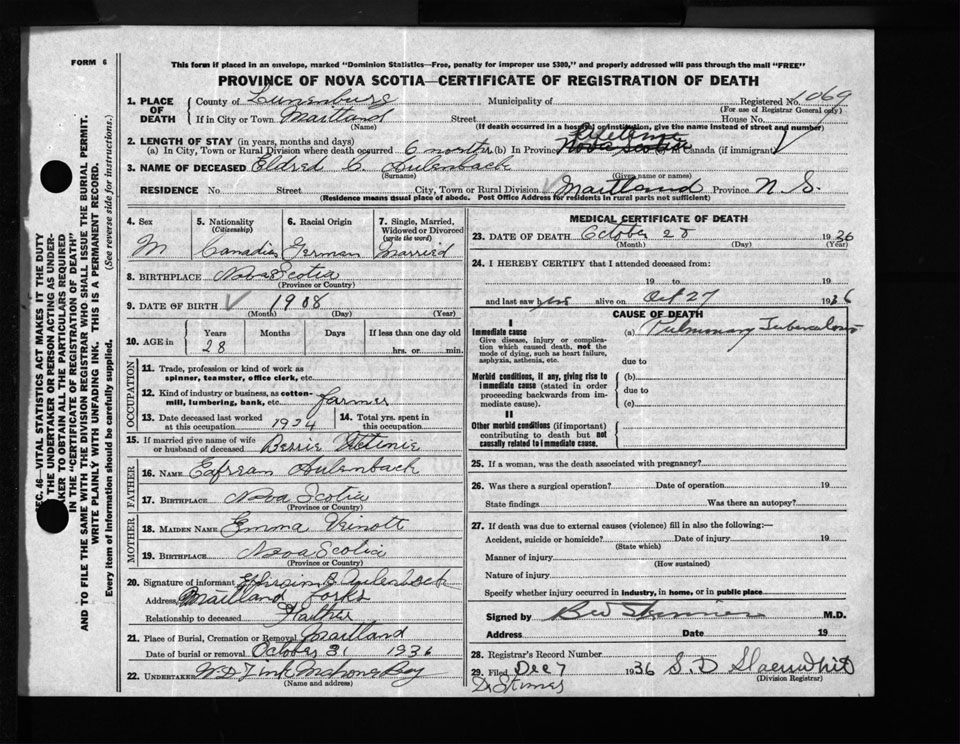 FORM 6
This form if placed in an envelope, marked "Dominion Statistics—Free, penalty for improper use $300," and properly addressed will pass through the mail "FREE"
PROVINCE OF NOVA SCOTIA—CERTIFICATE OF REGISTRATION OF DEATH
1. PLACE OF DEATH
County of Lunenburg Municipality of Registered No. 1069
(For use of Registrar General only)
If in City or Town Maitland Street House No.
(Name) (If death occurred in a hospital or institution, give the name instead of street and number)
2. LENGTH OF STAY (in years, months and days)
(a) In City, Town or Rural Division where death occurred 6 months (b) In Province Lifetime Nova Scotia (c) In Canada (if immigrant)
3. NAME OF DECEASED Eldred C. Aulenback
(Surname) (Given name or names)
RESIDENCE No. Street City, Town or Rural Division Maitland Province N. S.
(Residence means usual place of abode. Post Office Address for residents in rural parts not sufficient)
4. Sex M
5. Nationality (Citizenship) Canadian
6. Racial Origin German
7. Single, Married, Widowed or Divorced (write the word) Married
8. BIRTHPLACE Nova Scotia
(Province or Country)
9. DATE OF BIRTH 1908
(Month) (Day) (Year)
10. AGE in Years 28 Months Days If less than one day old hrs. or min.
OCCUPATION
11. Trade, profession or kind of work as spinner, teamster, office clerk, etc.
12. Kind of industry or business, as cotton-mill, lumbering, bank, etc. farmer
13. Date deceased last worked at this occupation 1934
14. Total yrs. spent in this occupation
15. If married give name of wife or husband of deceased Bessie
FATHER
16. NAME Aulenback
17. BIRTHPLACE Nova Scotia
(Province or Country)
MOTHER
18. MAIDEN NAME Emma Veinott
19. BIRTHPLACE Nova Scotia
(Province or Country)
20. Signature of informant Ephraim Aulenback
Address Maitland Forks
Relationship to deceased Father
21. Place of Burial, Cremation or Removal Maitland
Date of burial or removal October 31 1936
22. UNDERTAKER W D Zink Mahone Bay
(Name and address)
MEDICAL CERTIFICATE OF DEATH
23. DATE OF DEATH October 28 1936
(Month) (Day) (Year)
24. I HEREBY CERTIFY that I attended deceased from:
19 to 19
and last saw him alive on Oct 27 1936
CAUSE OF DEATH
I
Immediate cause (a) Pulmonary Tuberculosis
Give disease, injury or complication which caused death, not the mode of dying, such as heart failure, asphyxia, asthenia, etc.
due to
Morbid conditions, if any, giving rise to immediate cause (stated in order proceeding backwards from immediate cause).
(b)
due to
(c)
II
Other morbid conditions (if important) contributing to death but not causally related to immediate cause.
25. If a woman, was the death associated with pregnancy?
26. Was there a surgical operation? Date of operation 19
State findings Was there an autopsy?
27. If death was due to external causes (violence) fill in also the following:—
Accident, suicide or homicide? Date of injury 19
(State which)
Manner of injury
(How sustained)
Nature of injury
Specify whether injury occurred in industry, in home, or in public place
Signed by M.D.
Address Date 19
28. Registrar's Record Number
29. Filed Dec 7 1936 S. D
(Division Registrar)
SEC. 46—VITAL STATISTICS ACT MAKES IT THE DUTY
OF THE UNDERTAKER OR PERSON ACTING AS UNDER-
TAKER TO OBTAIN ALL THE PARTICULARS REQUIRED
IN THE "CERTIFICATE OF REGISTRATION OF DEATH"
AND TO FILE THE SAME WITH THE DIVISION REGISTRAR WHO SHALL ISSUE THE BURIAL PERMIT.
WRITE PLAINLY WITH UNFADING INK. THIS IS A PERMANENT RECORD.
Every item of Information should be carefully supplied. (See reverse side for instructions.)